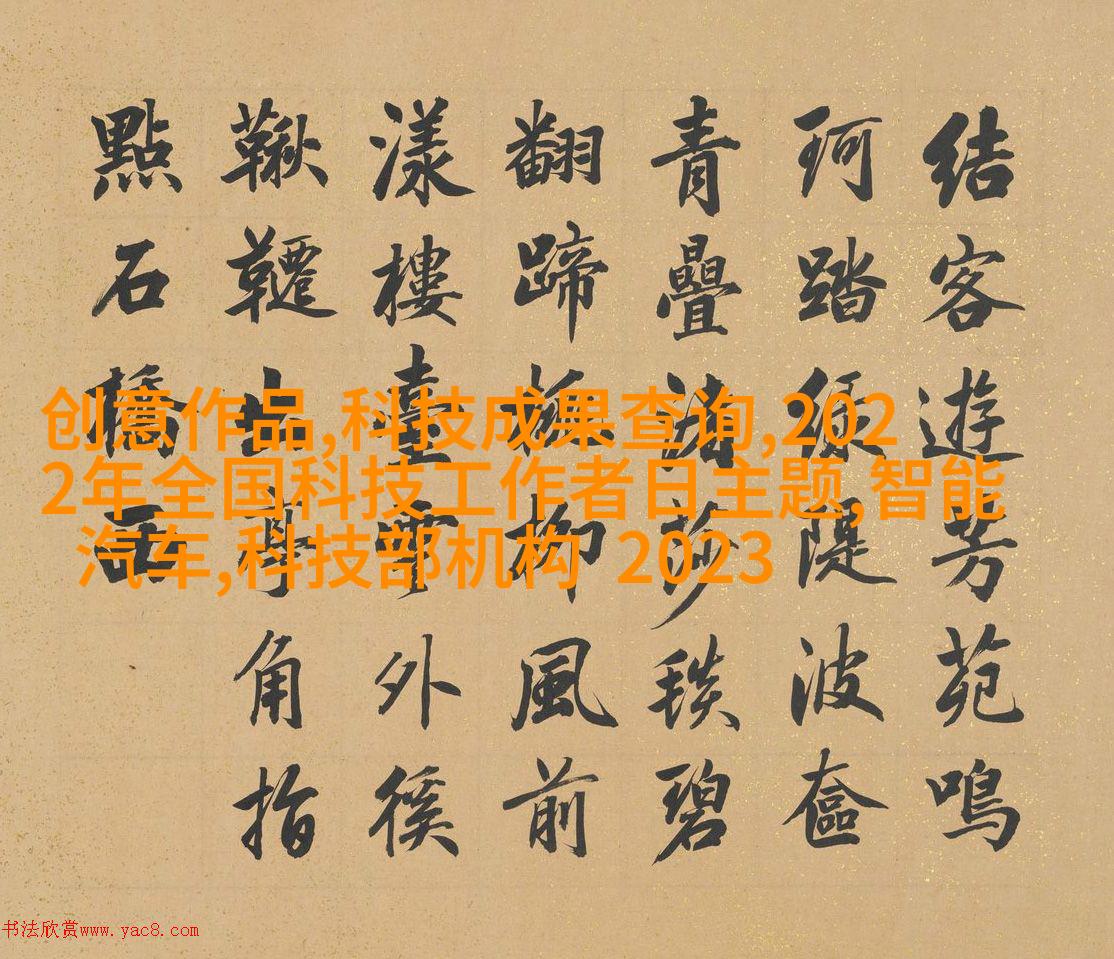 結客遊芳苑鳴
珂踏綠隄波奩
青疊渚莎毯碧
翻蹄柳風前
漾樓臺雲外徯
鞦韆出亭角指
點石橋西
创意作品,科技成果查询,202
2年全国科技工作者日主题,智能
汽车,科技部机构 2023
书法欣赏www.yac8.com